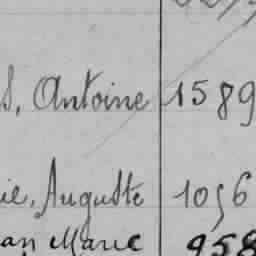 S, Antoine 1589
ie, Auguste 1056
an Marie 958